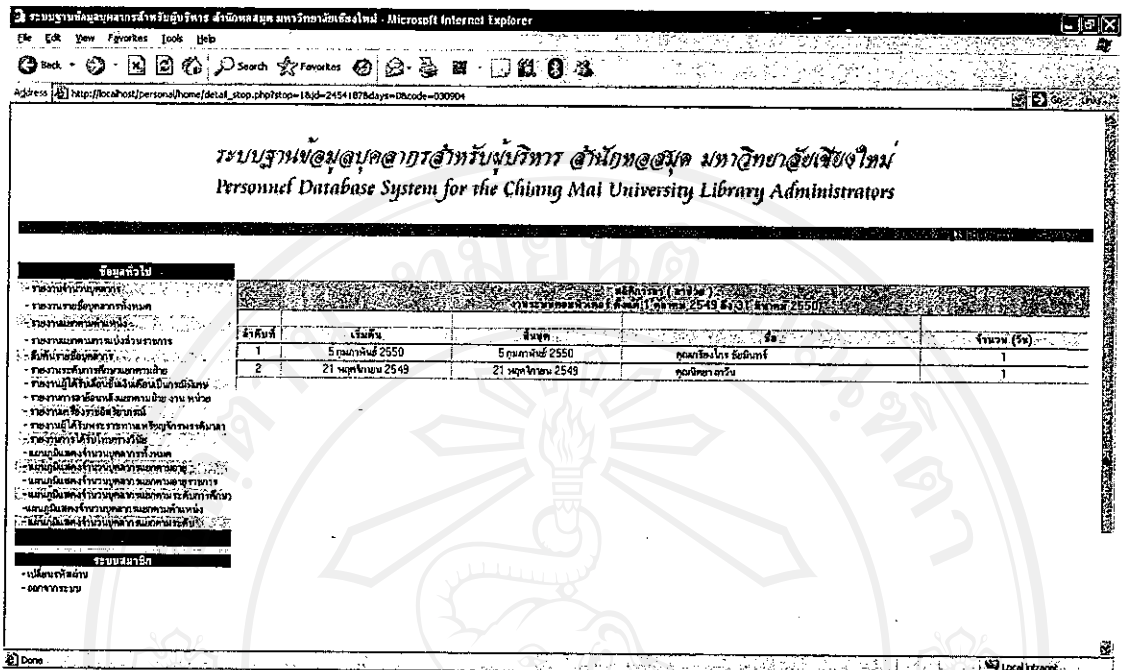 ระบบฐานข้อมูลบุคลากรสำหรับผู้บริหาร สำนักหอสมุด มหาวิทยาลัยเชียงใหม่ - Microsoft Internet Explorer
File Edit View Favorites Tools Help
Back Search Favorites
Address http://localhost/personal/home/detail_stop.php?stop=1&jd=2454187&days=0&code=030904 Go Links
ระบบฐานข้อมูลบุคลากรสำหรับผู้บริหาร สำนักหอสมุด มหาวิทยาลัยเชียงใหม่
Personnel Database System for the Chiang Mai University Library Administrators
ข้อมูลทั่วไป
- รายงานจำนวนบุคลากร
- รายงานรายชื่อบุคลากรทั้งหมด
- รายงานแยกตามตำแหน่ง
- รายงานแยกตามการแบ่งส่วนราชการ
- สืบค้นรายชื่อบุคลากร
- รายงานระดับการศึกษาแยกตามฝ่าย
- รายงานผู้ได้รับเลื่อนขั้นเงินเดือนเป็นกรณีพิเศษ
- รายงานการลาย้อนหลังแยกตามฝ่าย งาน หน่วย
- รายงานเครื่องราชอิสริยาภรณ์
- รายงานผู้ได้รับพระราชทานเหรียญจักรพรรดิมาลา
- รายงานการได้รับโทษทางวินัย
- แผนภูมิแสดงจำนวนบุคลากรทั้งหมด
- แผนภูมิแสดงจำนวนบุคลากรแยกตามอายุ
- แผนภูมิแสดงจำนวนบุคลากรแยกตามอายุราชการ
- แผนภูมิแสดงจำนวนบุคลากรแยกตามระดับการศึกษา
- แผนภูมิแสดงจำนวนบุคลากรแยกตามตำแหน่ง
- แผนภูมิแสดงจำนวนบุคลากรแยกตามระดับ
ระบบสมาชิก
- เปลี่ยนรหัสผ่าน
- ออกจากระบบ
สถิติการลา ( ลาป่วย )
งานระบบคอมพิวเตอร์ ตั้งแต่ 1 ตุลาคม 2549 ถึง 31 2550
ลำดับที่ เริ่มต้น สิ้นสุด ชื่อ จำนวน (วัน)
1 5 กุมภาพันธ์ 2550 5 กุมภาพันธ์ 2550 คุณเกรียงไกร ชัยมินทร์ 1
2 21 พฤศจิกายน 2549 21 พฤศจิกายน 2549 1
Done Local intranet